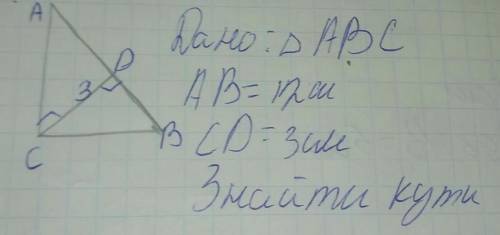 A
D
3
C
B
Дано: △ ABC
AB = 12см
CD = 3см
Знайти кути